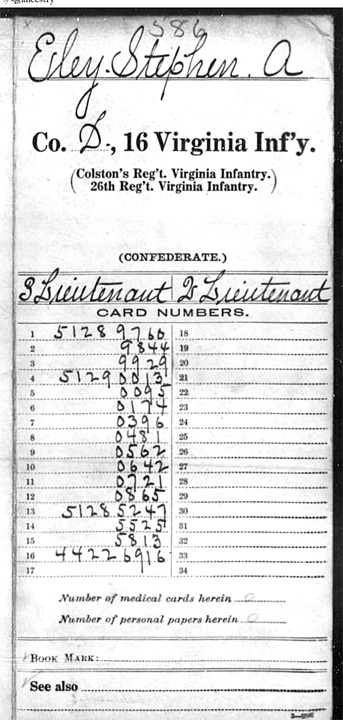 586
Eley, Stephen. A
Co. D., 16 Virginia Inf'y.
(Colston's Reg't. Virginia Infantry.
26th Reg't. Virginia Infantry.)
(CONFEDERATE.)
3 Lieutenant 2 Lieutenant
CARD NUMBERS.
1 51289760 18
2 9844 19
3 9929 20
4 51290013 21
5 0095 22
6 0174 23
7 0396 24
8 0481 25
9 0562 26
10 0642 27
11 0721 28
12 0865 29
13 51285247 30
14 5525 31
15 5813 32
16 44226916 33
17 34
Number of medical cards herein 0
Number of personal papers herein 0
BOOK MARK:
See also